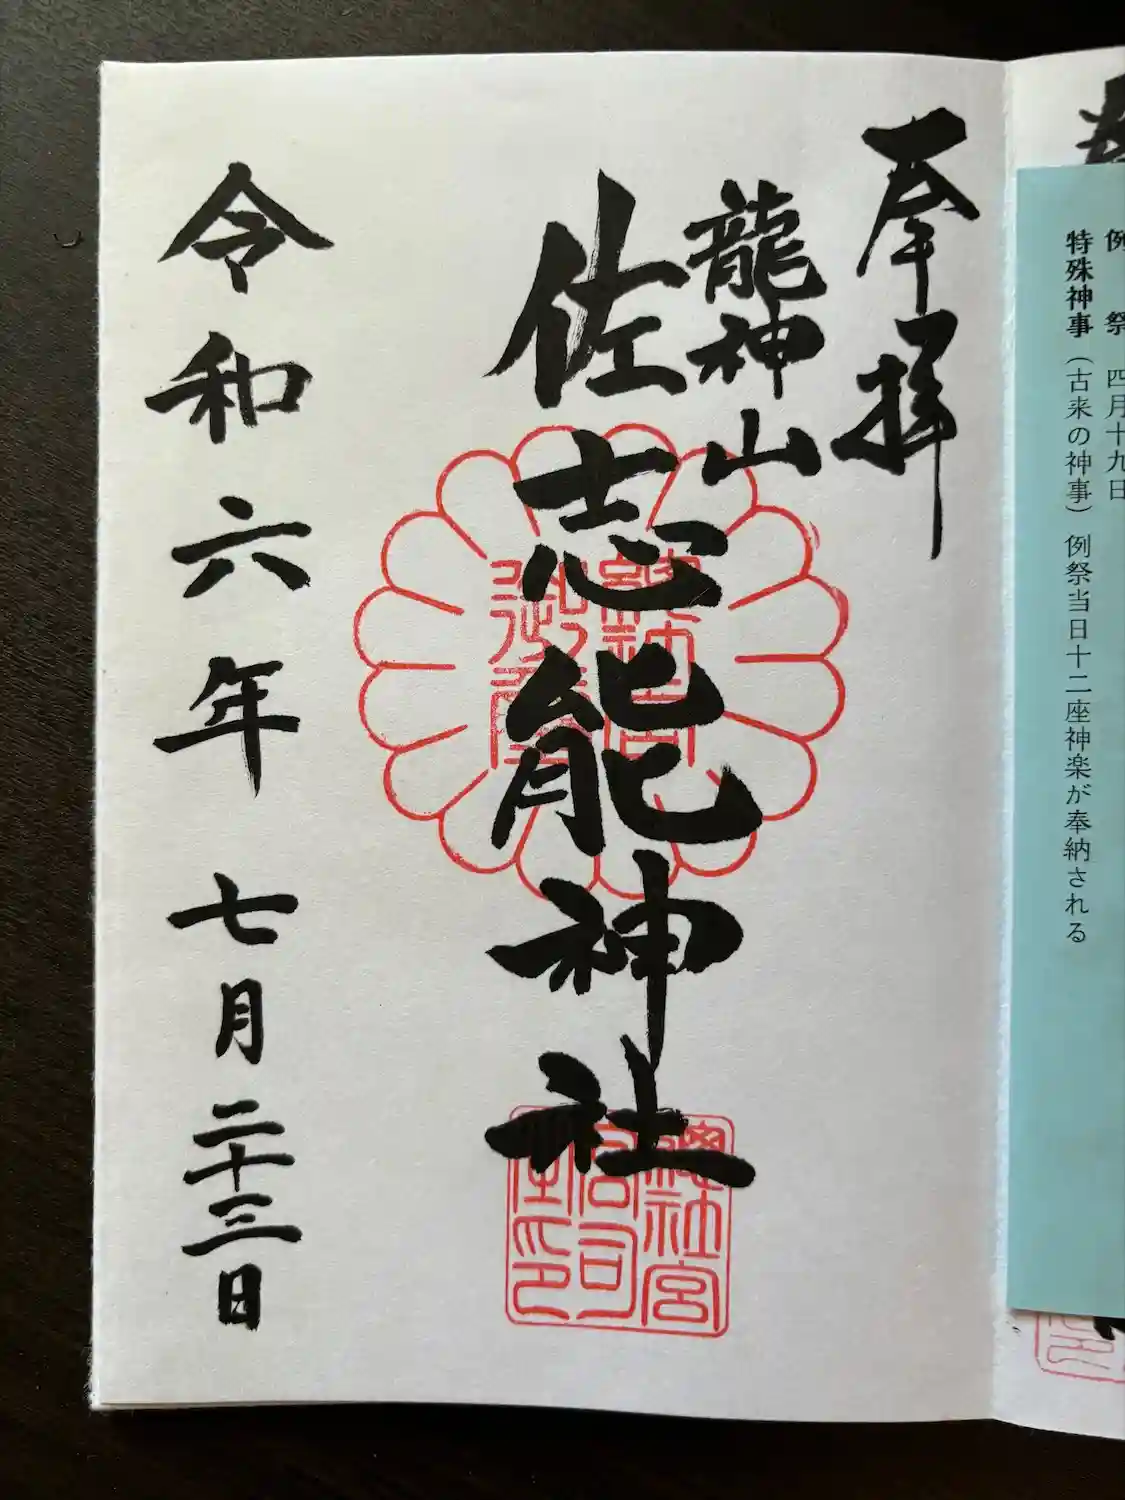 例　祭　四月十九日
特殊神事（古来の神事）例祭当日十二座神楽が奉納される
奉拝
龍神山
佐志能神社
令和六年七月二十三日
總社宮
宮司
印